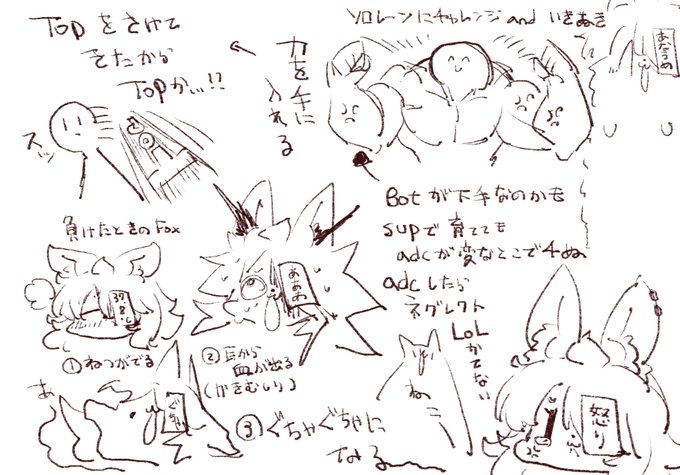 ソロレーンにチャレンジ and いきぬき
力を手に
入れる
←
Topをさけて
きたから
Topか...!!
スッ
Botが下手なのかも
supで育てても
adcが変なとこで4ぬ
adcしたら
ネグレクト
LoLかてない
負けたときのFox
37.8℃
①ねつがでる
あああ
②耳から
血が出る
(かきむしり)
あ
③ぐちゃぐちゃに
なる
ねこ
怒り